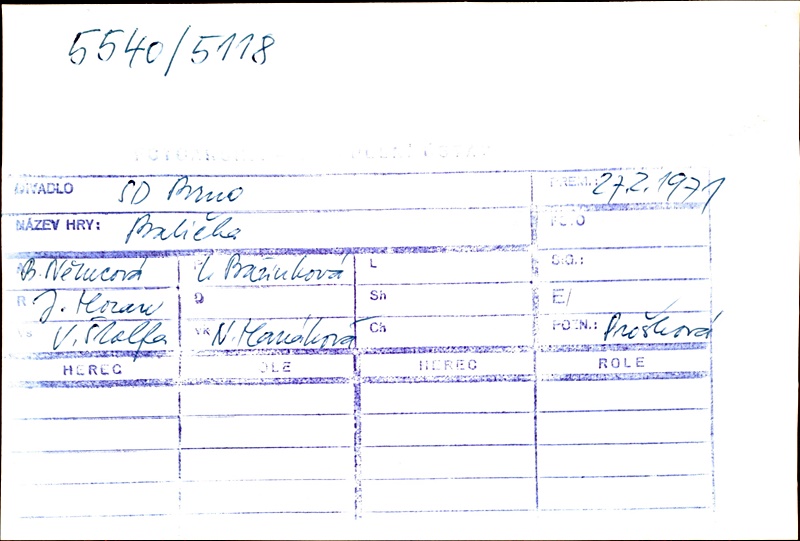 5540/5118
DIVADLO SD Brno PREM.: 27.2.1971
NÁZEV HRY: Babička FOTO
B. Němcová L. L SIG.:
R J. Moran D Sh E/
VS V. Štolfa VK N. Hanáková Ch POZN.: Prošková
HEREC ROLE HEREC ROLE